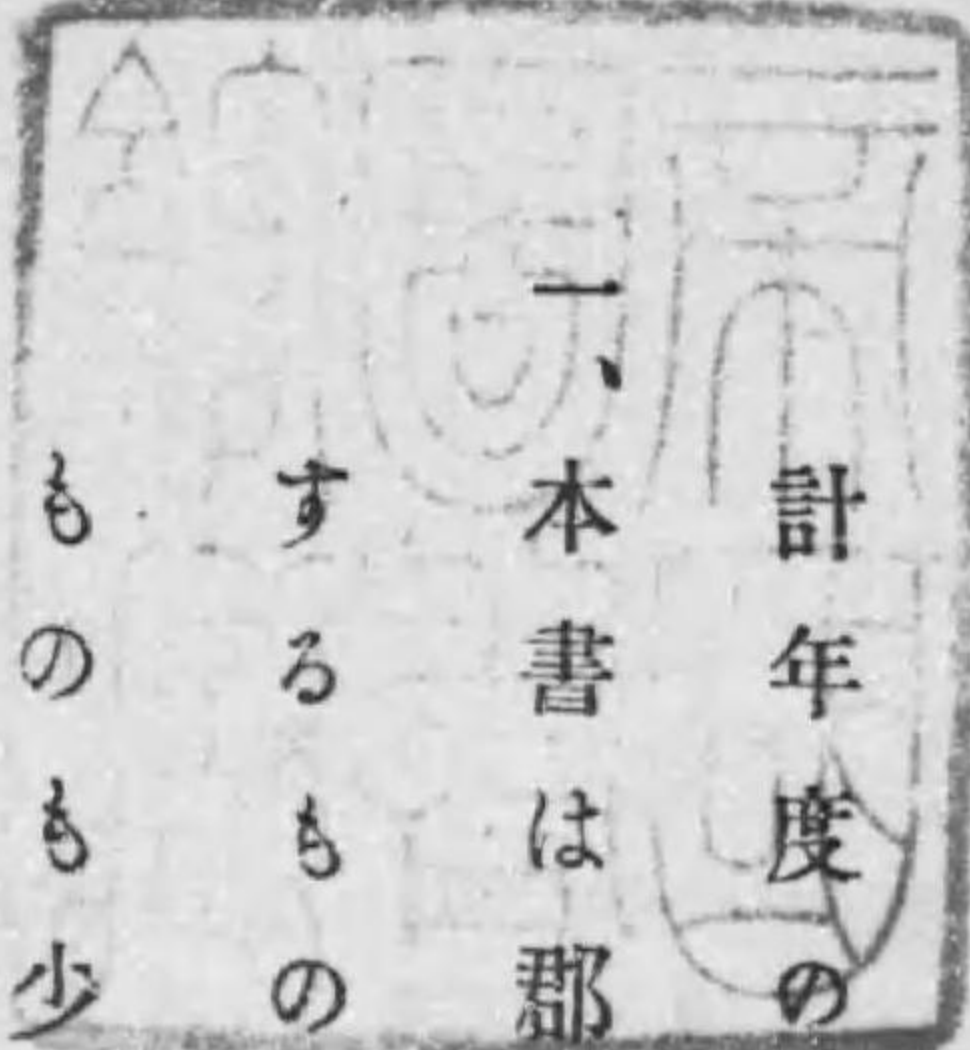 計年度の
一、本書は郡
するもの
ものも少